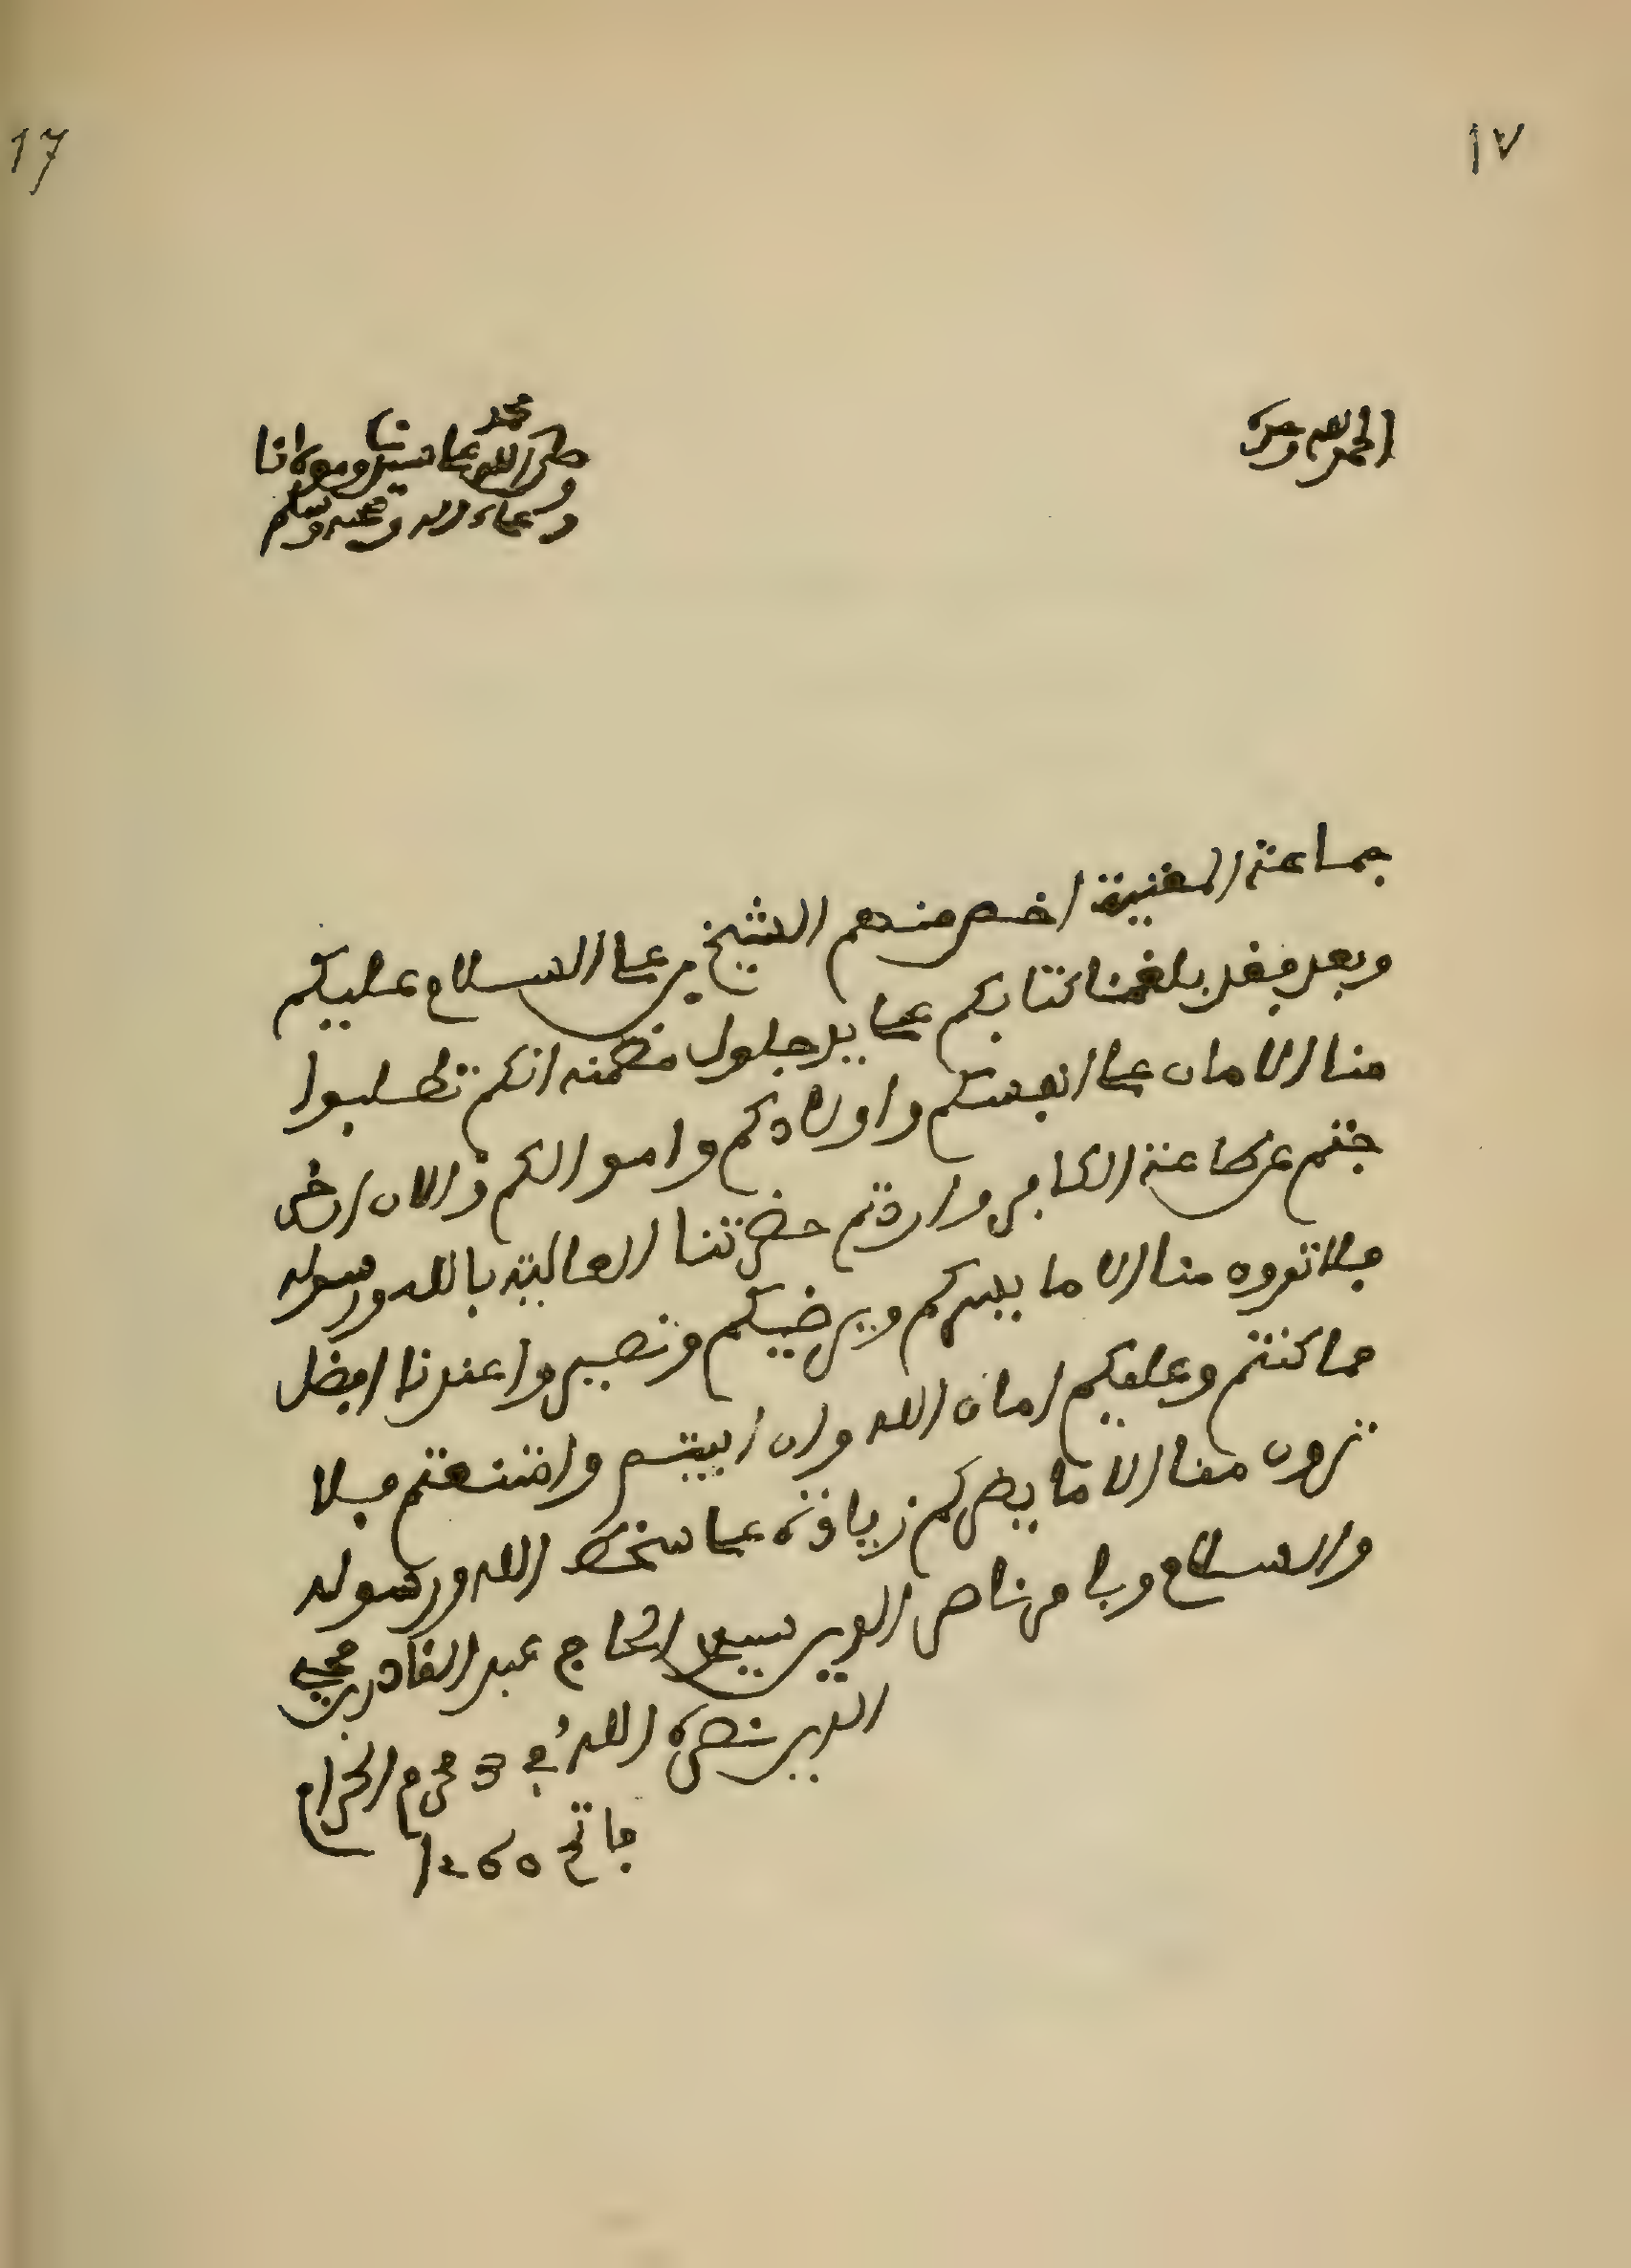 17
١٧
الحمد لله وحده
صلى الله على سيدنا ومولانا محمد
وعلى ءاله وصحبه وسلم
جماعة المغنية اخص منهم الشيخ بن علي السلام عليكم
وبعد فقد بلغنا كتابكم على يد جلول مضمنه انكم تطلبوا
منا الامان على انفسكم واولادكم واموالكم والان ان
جئتم عن طاعة الكافر واردتم حضرتنا العالية بالله ورسوله
فلا ترون منا الا ما يسركم ويرضيكم وتصيروا عندنا افضل
مما كنتم وعليكم امان الله وان ابيتم وامتنعتم فلا
ترون منا الا ما يضركم زيادة على سخط الله ورسوله
والسلام وبامر ناصر الدين سيدي الحاج عبد القادر بن محيي
الدين نصره الله في 3 محرم الحرام
فاتح 1260